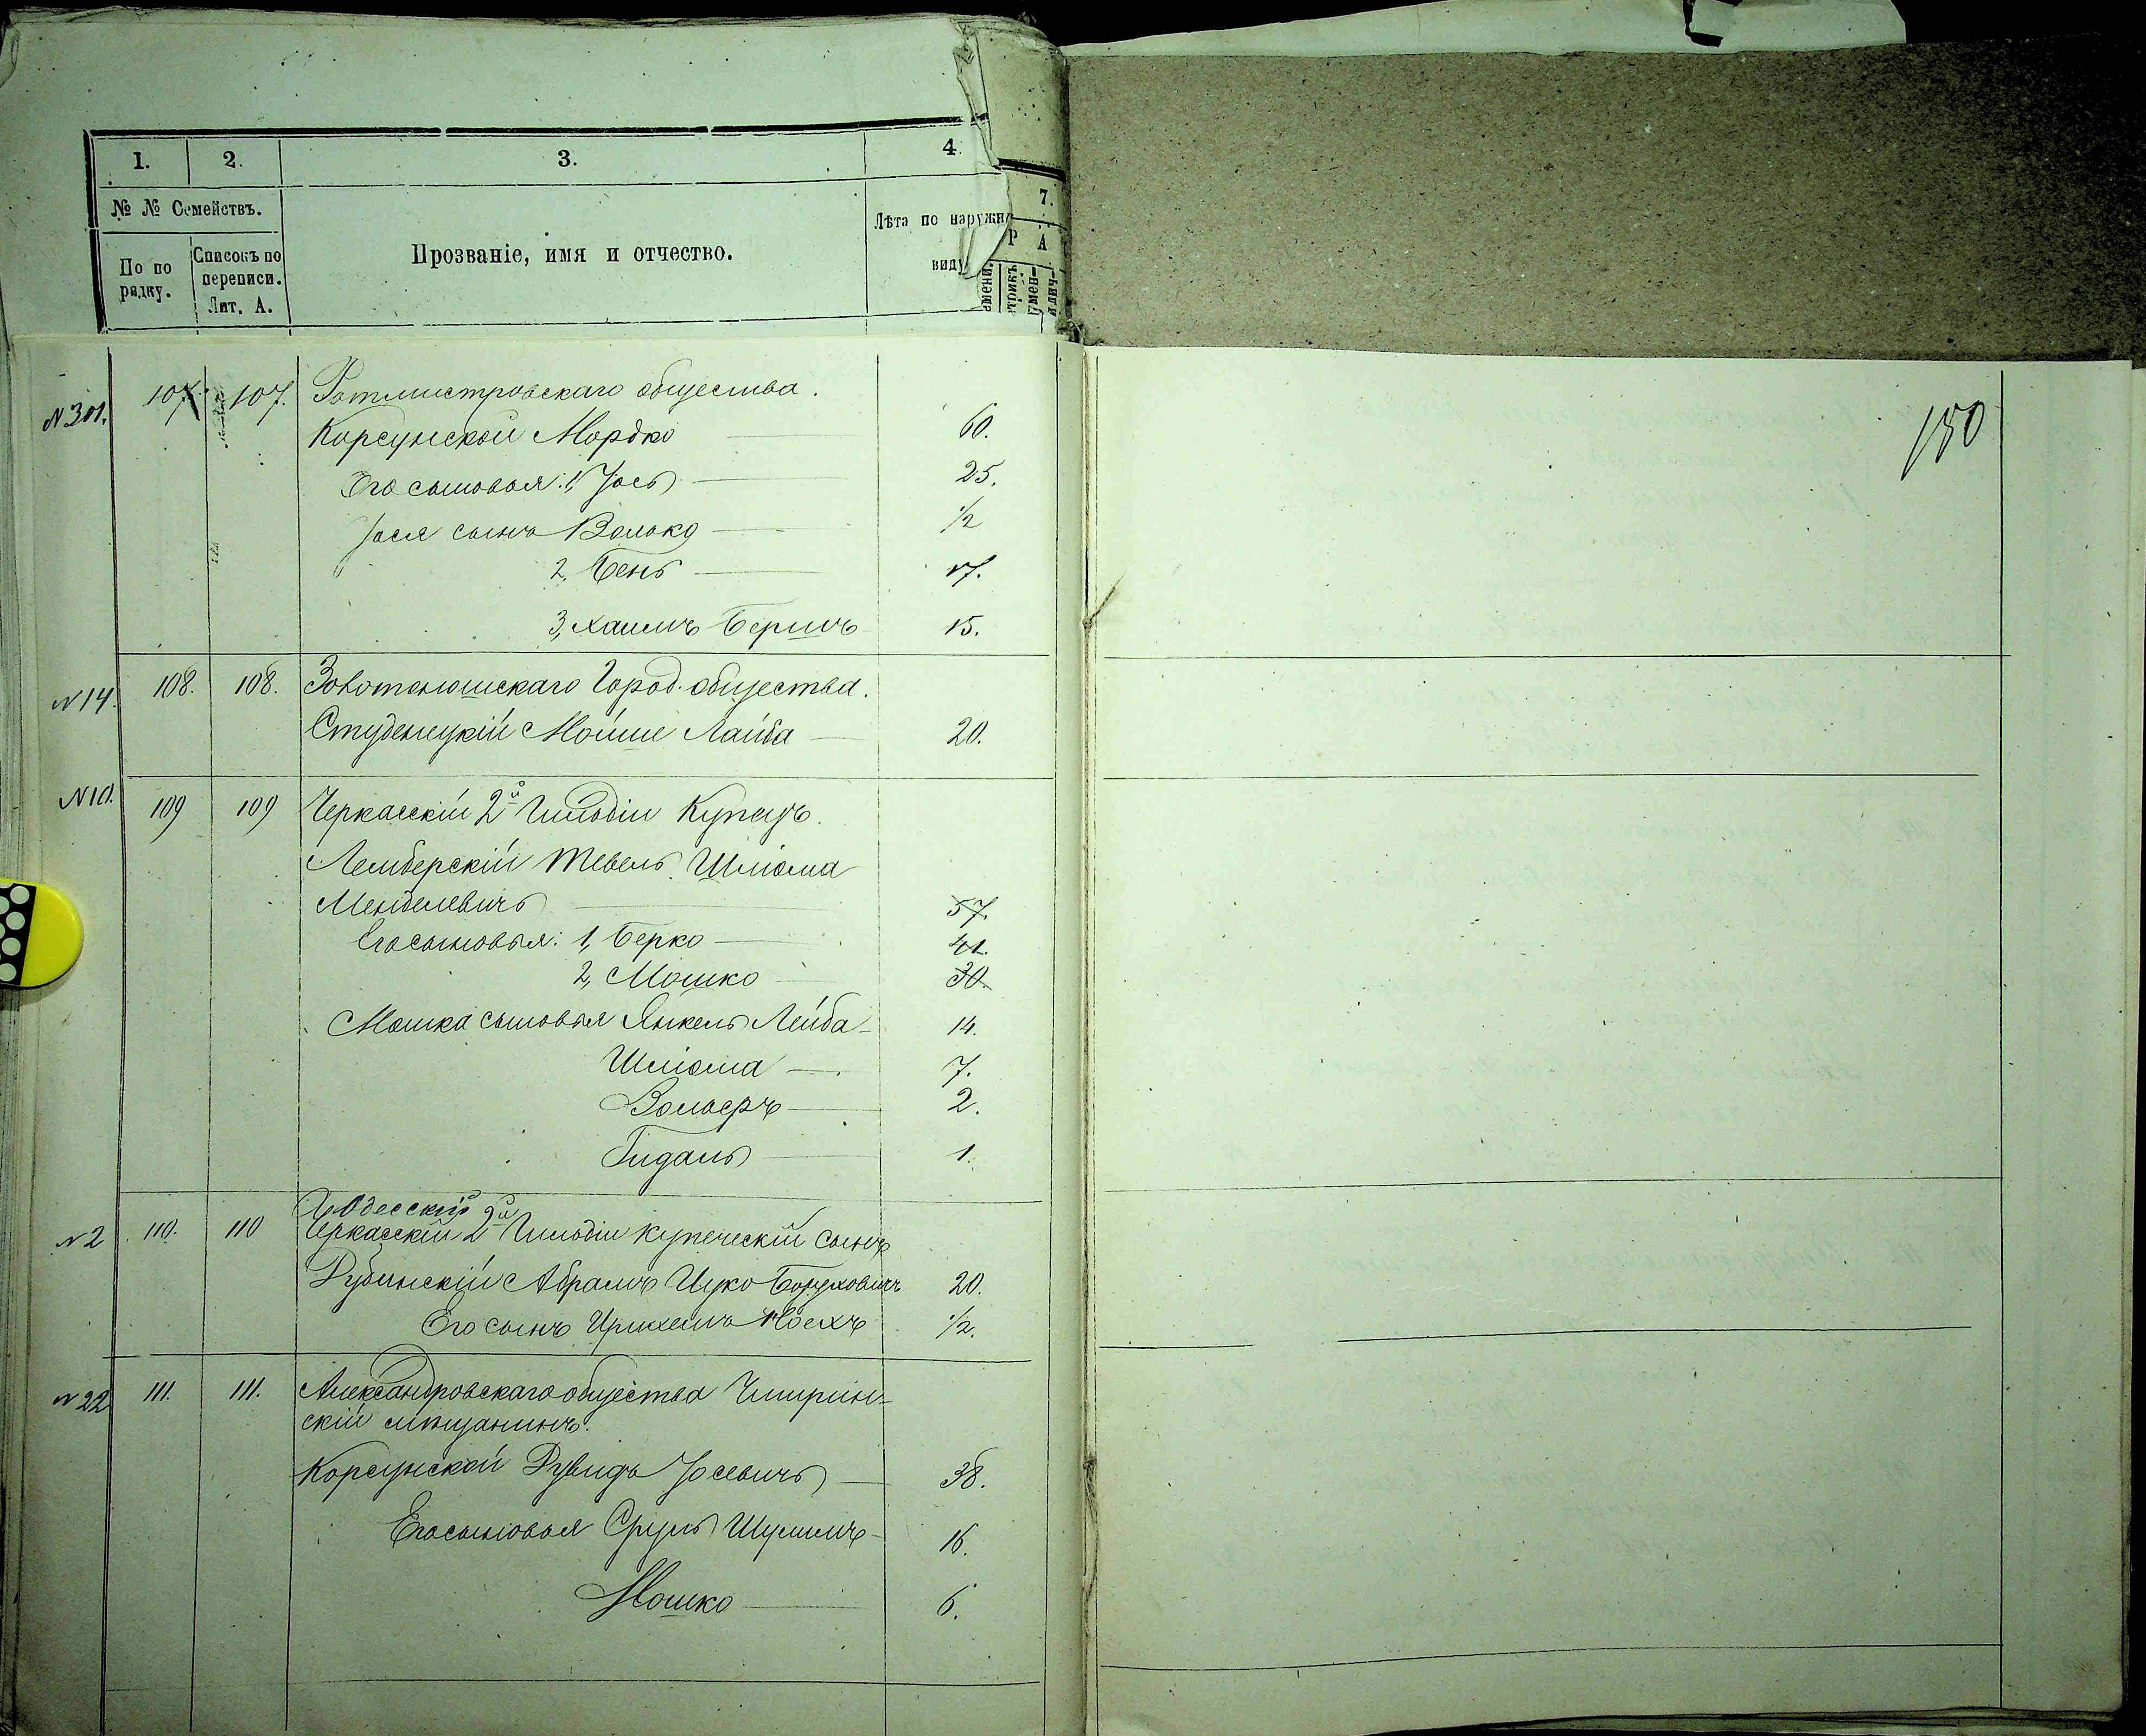 1. 2. 3. 4. 7.
№ № Семействъ.
По по рядку.
Списокъ по переписи. Лит. А.
Прозваніе, имя и отчество.
Лѣта по наружн
виду
Р А
150
N 301. 107. 107. Ротмистровскаго общества.
Корсунской Мордко 60.
Его сыновья: 1, Іось 25.
Іося сынъ Волько 1/2
2, Бень 17.
3, Хаимъ Беришъ 15.
N 14. 108. 108. Золотоношскаго Город. общества.
Студенецкій Мойше Лайба 20.
N 10. 109 109 Черкасскій 2й Гильдіи Купецъ.
Лемберскій Тевель Шліома
Менделевичъ 57.
Его сыновья: 1, Берко 41.
2, Мошко 30.
Мошка сыновья Янкель Лейба 14.
Шліома 7.
Вольфъ 2.
Гидаль 1.
Одесскій
N 2 110. 110 Черкасскій 2й Гильдіи купеческій сынъ
Рубинскій Абрамъ Ицко Боруховичъ 20.
Его сынъ 1/2.
N 22 111. 111. Александровскаго общества Чигирин-
скій мѣщанинъ.
Корсунской Рувидъ Іосевичъ 38.
Его сыновья Сруль Шулимъ 16.
Мошко 6.